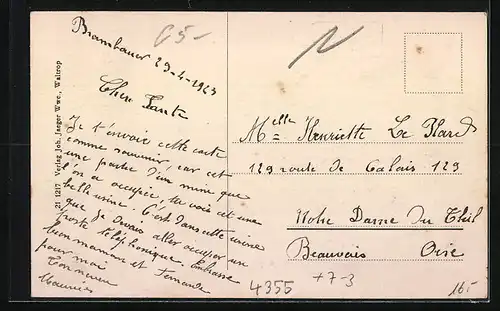 Brambauer 29-4-1923
Cher Tante
Je t'envoie cette carte
comme souvenir, car cet
une partie d'un mine que
l'on a occupée, tu vois cet une
belle usine. C'est dans cette usine
que je devais aller occuper un
poste téléphonique. Embrasse
bien maman et
pour moi
Ton neveu
Maurice
Melle Henriette Le
129 route de Calais 129
Notre Dame du Thil
Beauvais Oise
21 1217 Verlag Joh. Jaeger Wwe., Waltrop
65-
N
4355
+7-3
16.-